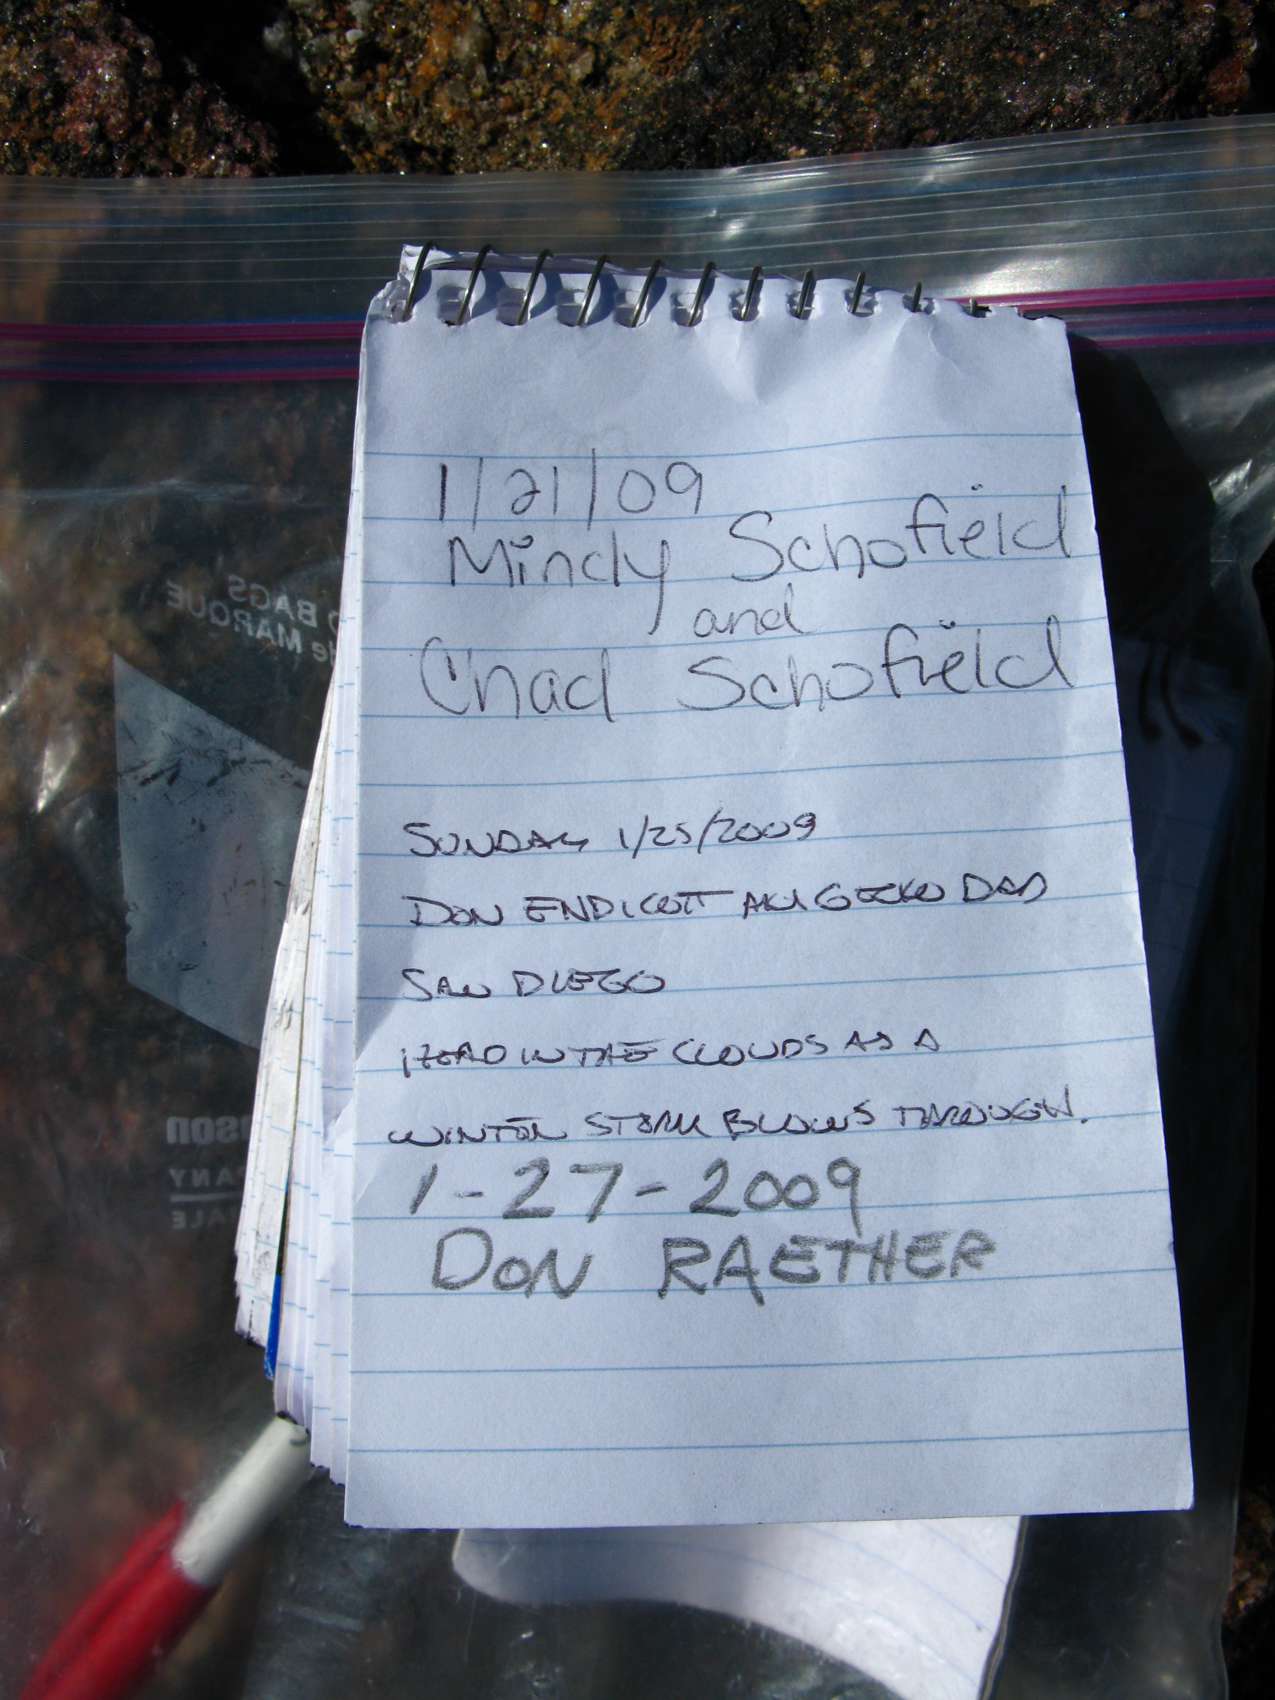 1/21/09
Mindy Schofield
and
Chad Schofield
SUNDAY 1/25/2009
DON ENDICOTT AKA GECKO DAD
SAN DIEGO
HEAD IN THE CLOUDS AS A
WINTER STORM BLOWS THROUGH.
1-27-2009
DON RAETHER
BAGS
de MARQUE
nson